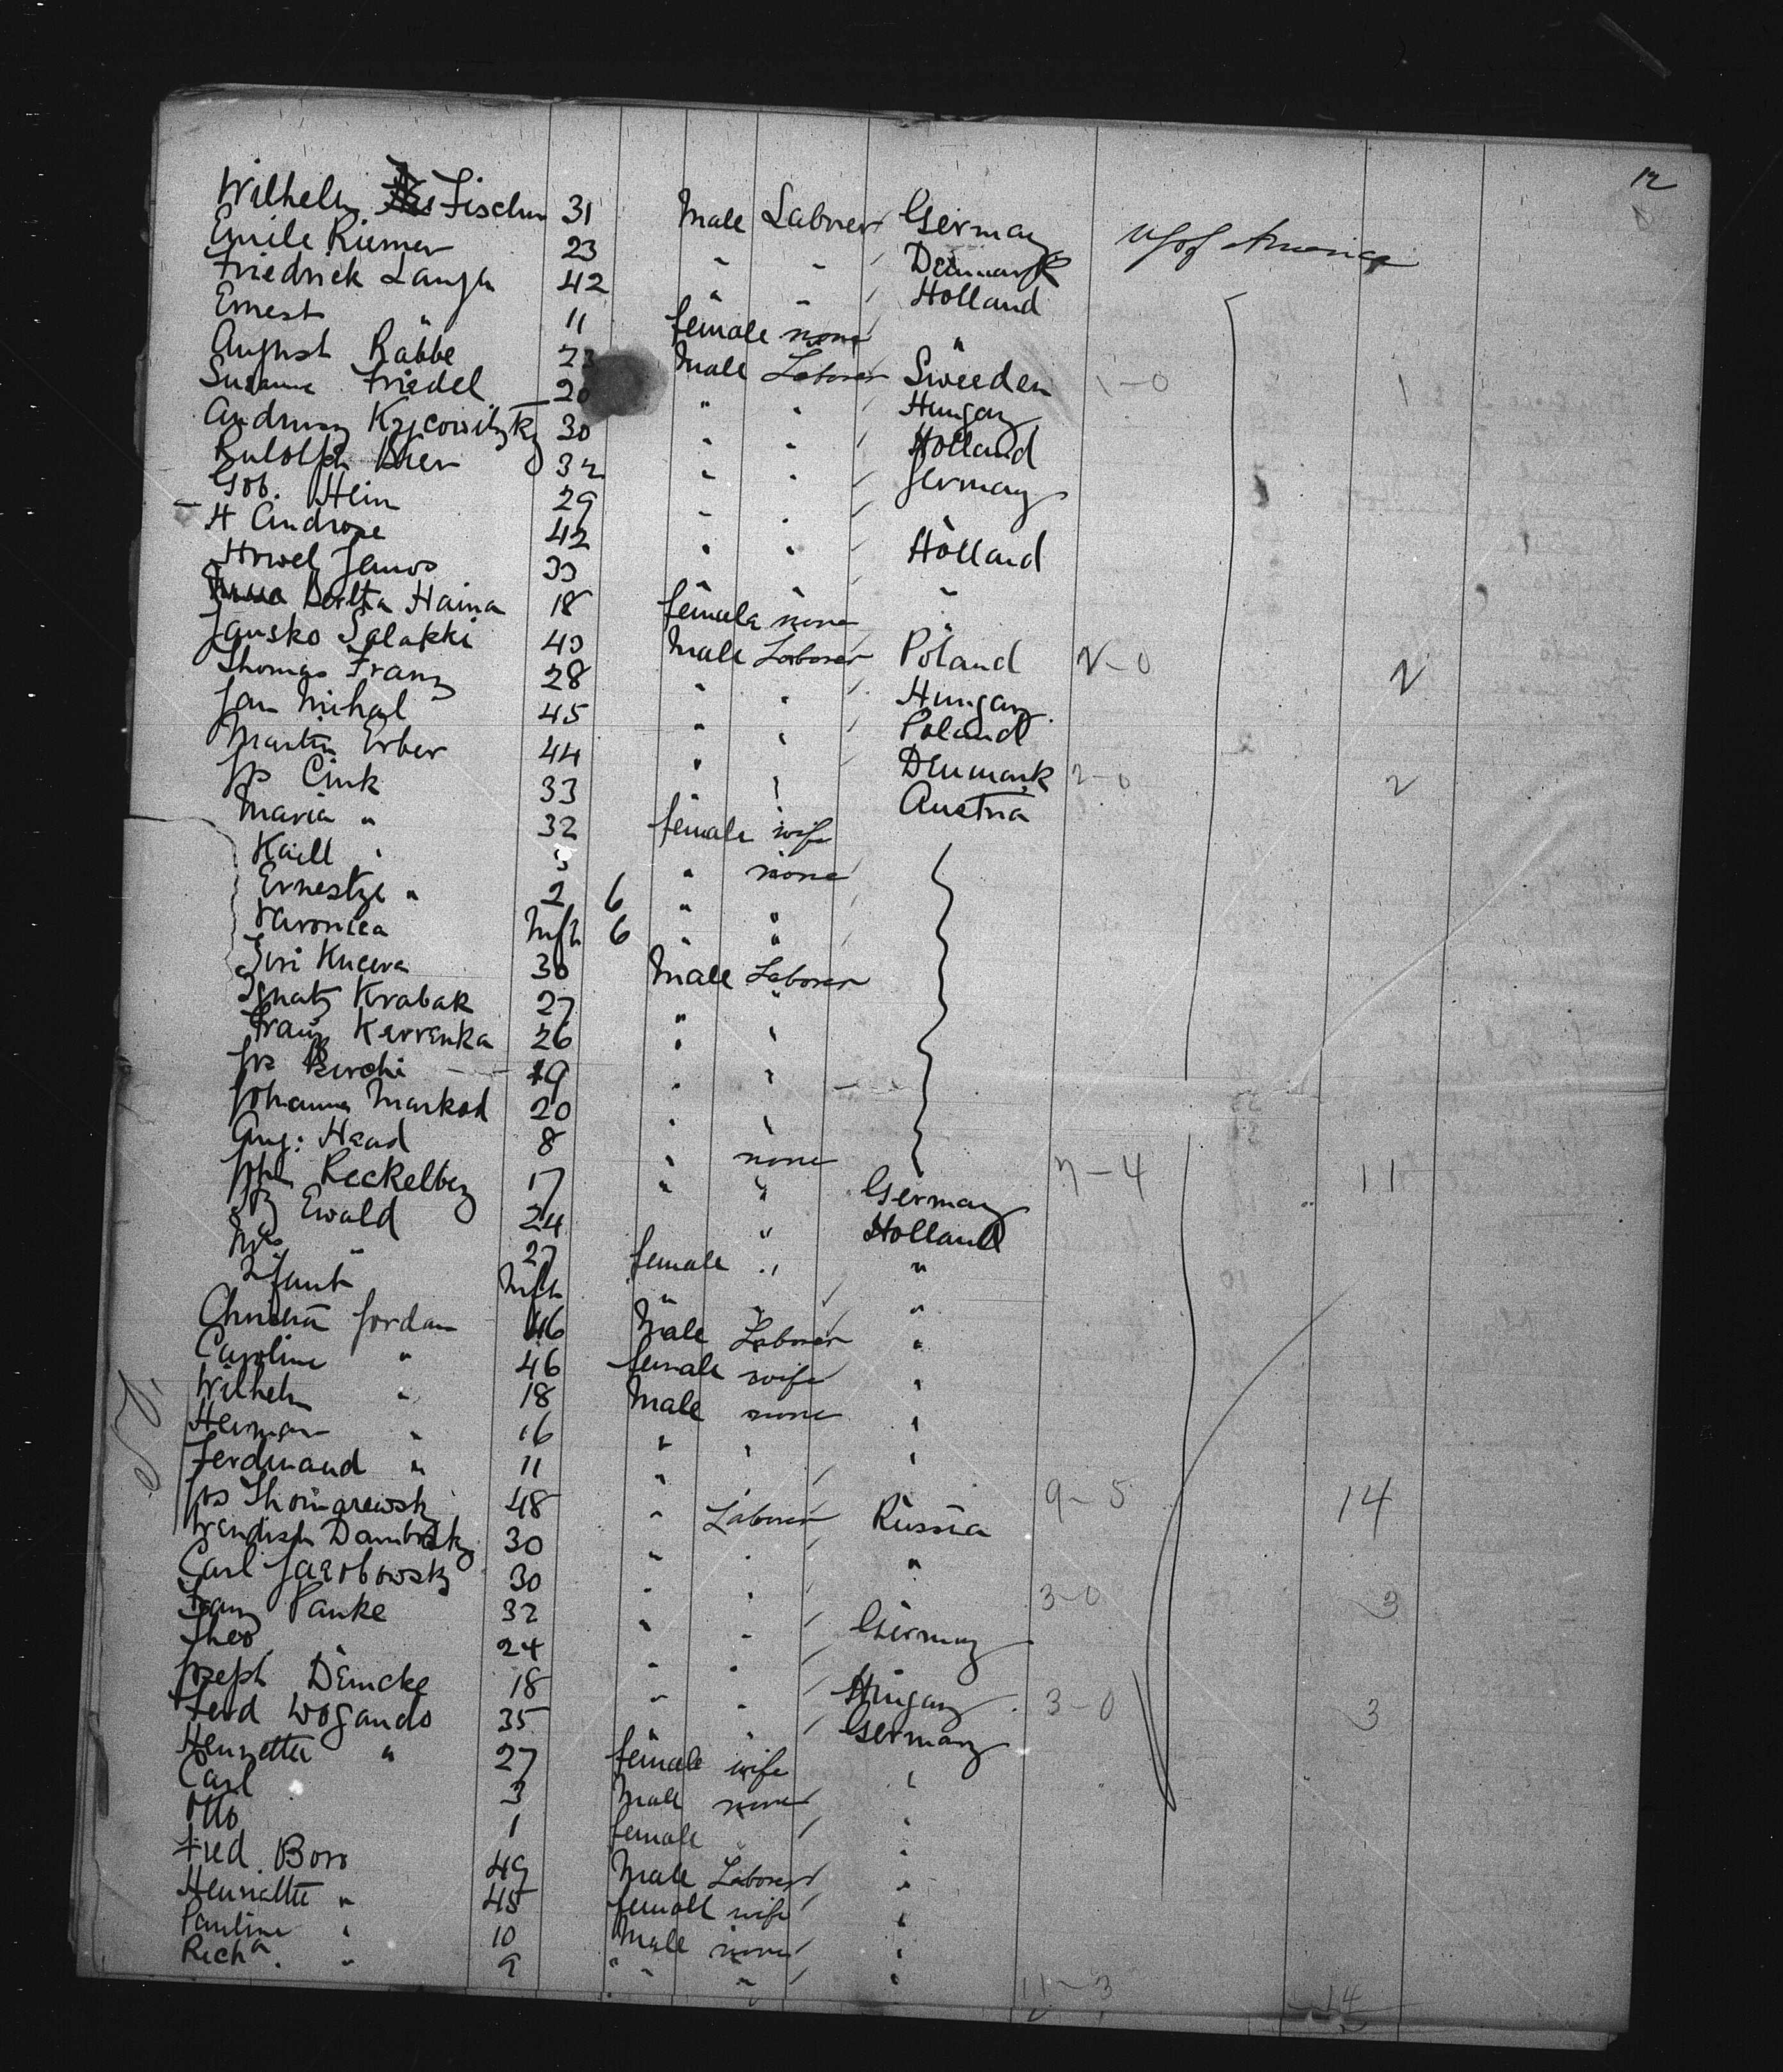 12
Wilhelm Fischer 31 Male Laborer Germany U S of America
Emile Riemer 23 " " Denmark
Friedrick Langa 42 " " Holland
Ernest " 11 female none "
August Räbbe 23 Male Laborer Sweeden 1-0 1
Susanne Friedel 20 " " Hungary
30 " " Holland
Rudolph 32 " " Germany
Gob. Hein 29 " " "
H Androse 42 " " Holland
Howel Janos 33 " " "
Bertha Haina 18 female none "
Jansko Salakki 43 Male Laborer Poland 2-0 2
Thomas Franz 28 " " Hungary
Jan Mihal 45 " " Poland
Martin Erber 44 " " Denmark 2-0 2
Jos Cink 33 " Austria
Maria " 32 female wife
Kaill " 3 " none
Ernestze " 2 6 " "
Varonica Inft 6 " "
Jiri Kucera 30 Male Laborer
Ignatz Krabak 27 " "
Franz Kerrenka 26 " "
Jos 19 " "
Johanna Markod 20 " "
Aug: Haad 8 " none
John Reckelberg 17 " " Germany 7-4 11
Ewald 24 " Holland
Mrs " 27 female " "
Infant Inft " " "
Christian Jordan 46 Male Laborer "
Caroline " 46 female wife "
Wilhelm " 18 Male none "
Herman " 16 " " "
Ferdinand " 11 " " "
Jos 48 " Laborer Russia 9-5 14
30 " " "
Carl Jacobowsky 30 " " 3-0 3
Franz Panke 32 " " Germany
Theo 24 " "
Joseph Demcke 18 " " Hungary 3-0 3
Ferd Wogando 35 " " Germany
Henrietta " 27 female wife "
Carl 3 Male none
Otto 1 female " "
Fred. Born 49 Male Laborer "
Henriette " 45 female wife "
Pauline " 10 Male none "
Richd. " 9 " " " 11-3 14